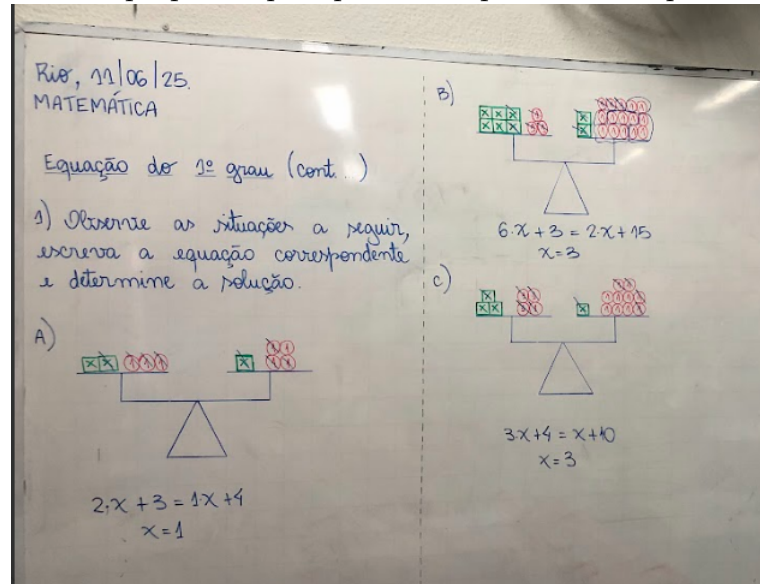 Rio, 11/06/25.
MATEMÁTICA
Equação do 1º grau (cont...)
1) Observe as situações a seguir,
escreva a equação correspondente
e determine a solução.
A)
x x 1 1 1
x 1 1
1 1
2·x + 3 = 1·x + 4
x = 1
B)
x x x 1
x x x 1 1
x
x
6·x + 3 = 2·x + 15
x = 3
C)
x 1 1
x x 1 1
x
3·x + 4 = x + 10
x = 3